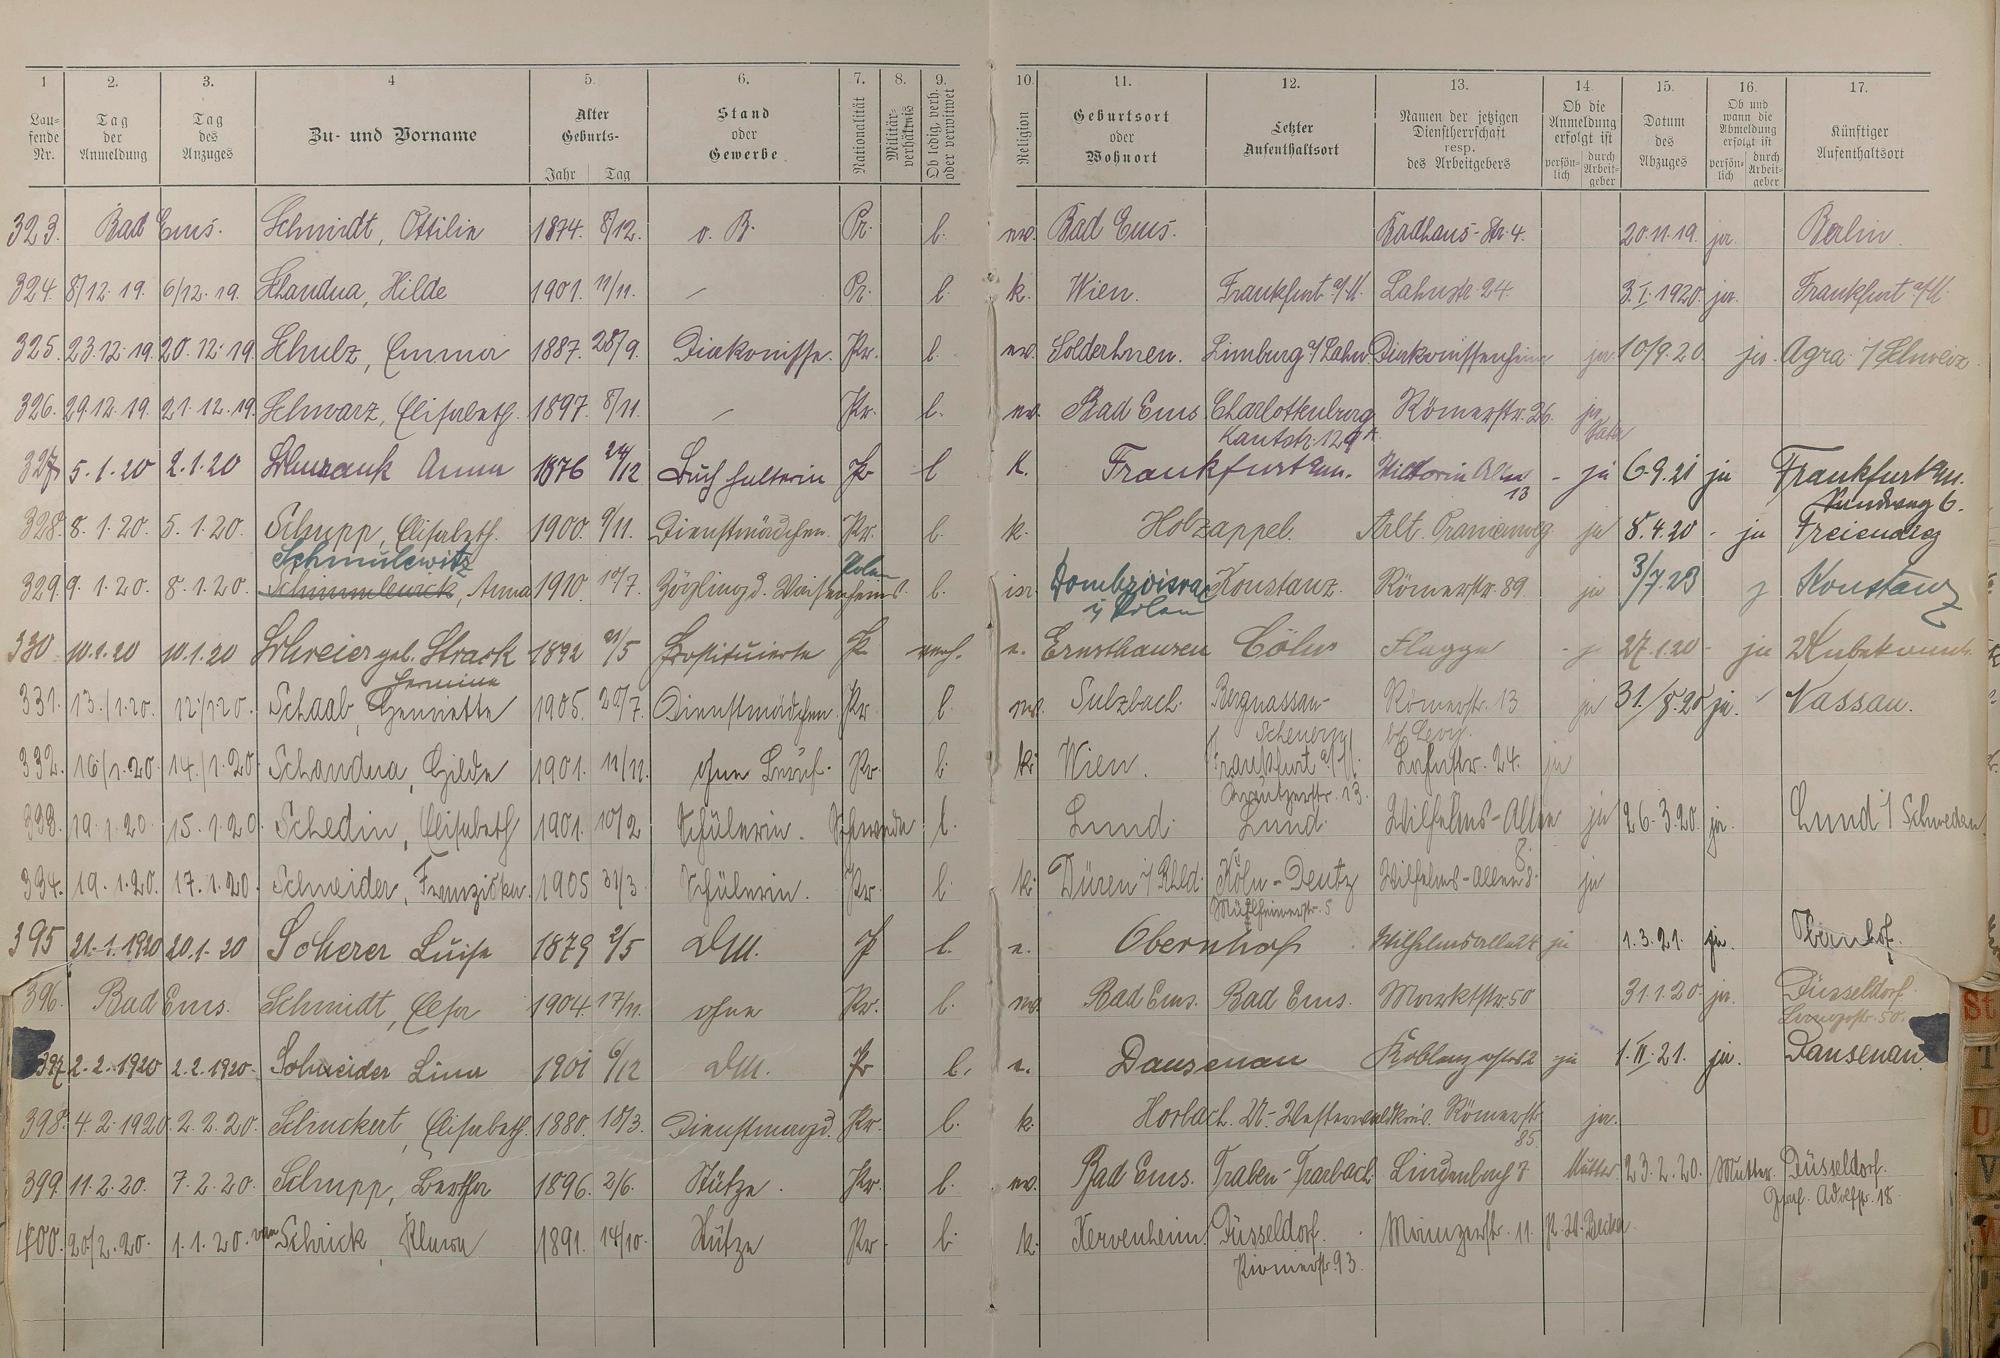 1 2. 3. 4 5. 6. 7. 8. 9. 10. 11. 12. 13. 14. 15. 16. 17.
Lau-
fende
Nr.
Tag
der
Anmeldung
Tag
des
Anzuges
Zu- und Vorname
Alter
Geburts-
Jahr Tag
Stand
oder
Gewerbe
Nationalität
Militär-
verhältnis
Ob ledig, verh.
oder verwitwet
Religion
Geburtsort
oder
Wohnort
Letzter
Aufenthaltsort
Namen der jetzigen
Dienstherrschaft
resp.
des Arbeitgebers
Ob die
Anmeldung
erfolgt ist
persön-
lich
durch
Arbeit-
geber
Datum
des
Abzuges
Ob und
wann die
Abmeldung
erfolgt ist
persön-
lich
durch
Arbeit-
geber
Künftiger
Aufenthaltsort
323. Bad Ems. Schmidt, Ottilie 1874. 8/12. o. B. Pr. l. ev. Bad Ems. Badhaus-Str. 4. 20.11.19. ja. Berlin.
324. 8/12.19. 6/12.19. Schandua, Hilde 1901. 11/11. – Pr. l. k. Wien. Frankfurt a/M. Lahnstr. 24. 3.I.1920. ja. Frankfurt a/M.
325. 23.12.19. 20.12.19. Schulz, Emma 1887. 28/9. Diakonisse. Pr. l. ev. Limburg a/Lahn Diakonissenheim ja 10/9.20. ja. Agra i/Schweiz.
326. 29.12.19. 21.12.19. Schwarz, Elisabeth. 1897. 8/11. – Pr. l. ev. Bad Ems Charlottenburg Römerstr. 26. ja
Kantstr. 129a. Vater
327 5.1.20 2.1.20 Anna 1876 24/12 Buchhalterin Pr l k. Frankfurt a.m. Viktoria Allee - ja 6.9.21 ja Frankfurt a.m.
13
328. 8.1.20. 5.1.20. Schupp, Elisabeth. 1900. 9/11. Dienstmädchen. Pr. l. k. Holzappel. Arlt. Oranienweg ja 8.4.20 - ja Freiendiez
Schmulewitz Polen
329. 9.1.20. 8.1.20. Anna 1910. 10/7. Zögling d. Waisenheims. l. isr. Konstanz. Römerstr. 89. ja 3/7.23 j Konstanz
i/Polen
330 10.1.20 10.1.20 Schreier geb. Strack 1892 21/5 Prostituierte Pr verh. e. Ernsthausen Cöln Flagge - j 27.1.20 - ja Unbekannt.
Hermine
331. 13./1.20. 12/1.20. Schaab, Henriette 1905. 20/7. Dienstmädchen. Pr l. ev. Sulzbach. Bergnassau- Römerstr. 13 ja 31./8.20 ja. Nassau.
Scheuern b/ Levy.
332. 16/1.20. 14./1.20. Schandua, Hilde 1901. 11/11. ohne Beruf. Pr. l. k. Wien. Frankfurt a/M. Lahnstr. 24. ja
333. 19.1.20. 15.1.20. Schedin, Elisabeth 1901. 10/2 Schülerin. Schweden l. Lund. Lund. Wilhelms-Allee ja 26.3.20. ja. Lund i/Schweden.
8.
334. 19.1.20. 17.1.20. Schneider, Franziska. 1905 31/3. Schülerin. Pr l. k. Düren i/Rhld. Köln-Deutz Wilhelms-Allee 8. ja
Mülheimerstr. 5
395 21.1.1920 20.1.20 Scherer Luise 1879 2/5 DM. P l. e. Obernhof 1.3.21. ja. Obernhof.
396. Bad Ems. Schmidt, Elsa 1904. 17/11. ohne Pr. l. ev. Bad Ems. Bad Ems. Marktstr. 50 31.1.20. ja. Düsseldorf.
397 2.2.1920 2.2.1920. Schneider Lina 1901 6/12 DM. Pr l. e. Dausenau Koblenzerstr. 2 ja 1.II.21. ja. Dausenau.
398. 4.2.1920. 2.2.20. Schuckert, Elisabeth. 1880. 18/3. Dienstmagd. Pr. l. k. Horbach. U-Westerwaldkreis. Römerstr. ja.
85.
399. 11.2.20. 7.2.20. Schupp, Bertha 1896. 2/6. Stütze. Pr. l. ev. Bad Ems. Traben-Trarbach. Lindenbach 7 Mutter. 23.2.20. Mutter. Düsseldorf.
400. 20/2.20. 1.1.20. van Schrick, Klara 1891. 14/10. Stütze Pr. l. k. Kervenheim Düsseldorf. Mainzerstr. 11.
Pionierstr. 93.
St
T
U
V
W